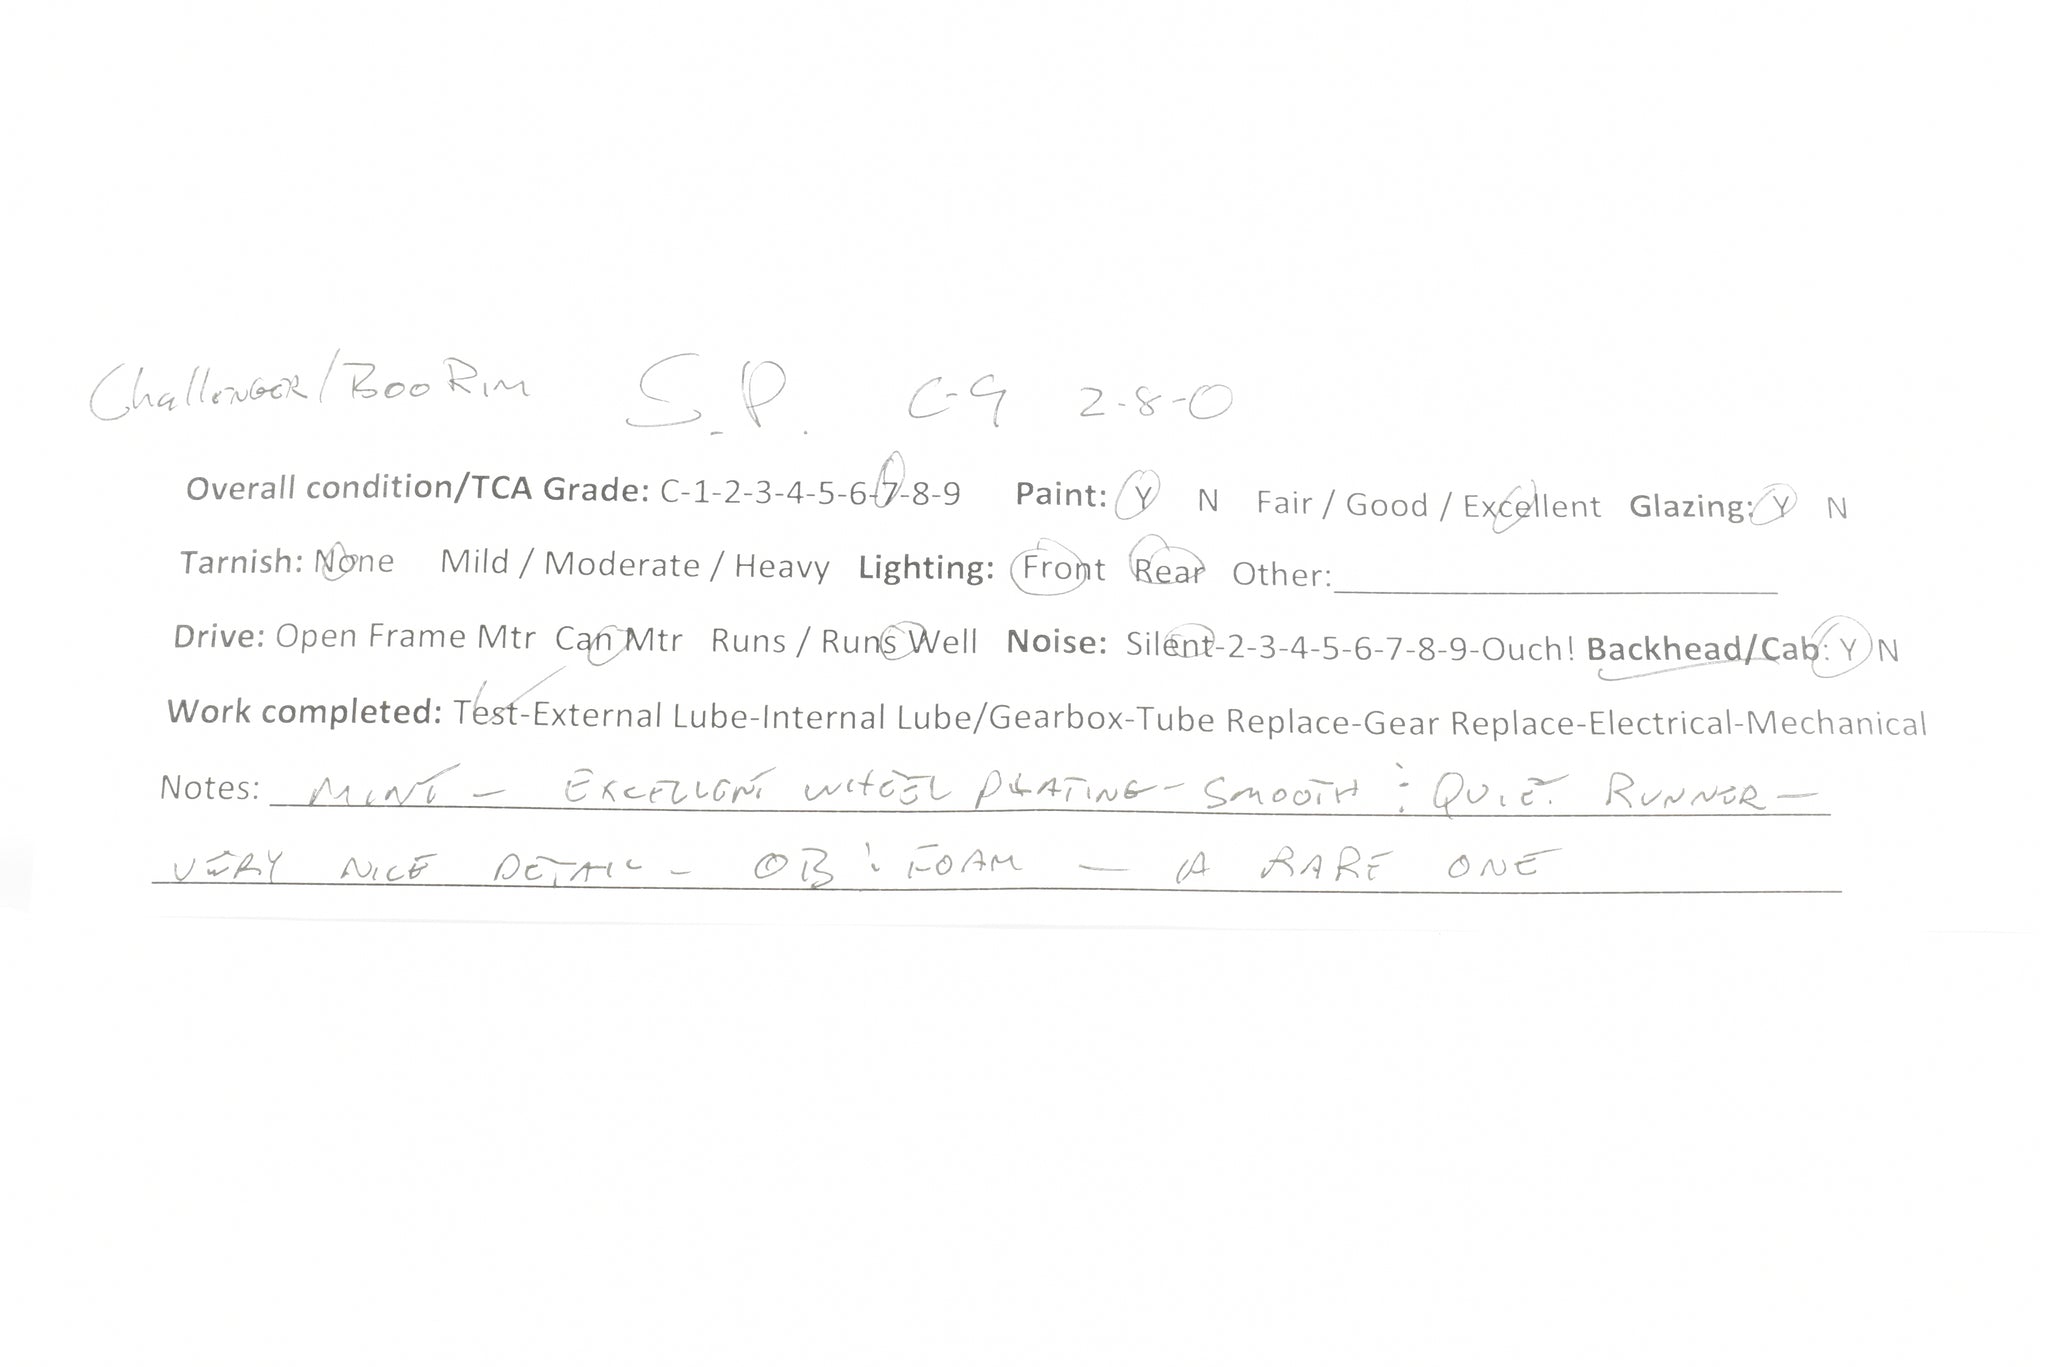 Challenger/Boo Rim S.P. C-9 2-8-0
Overall condition/TCA Grade: C-1-2-3-4-5-6-7-8-9 Paint: Y N Fair / Good / Excellent Glazing: Y N
Tarnish: None Mild / Moderate / Heavy Lighting: Front Rear Other:
Drive: Open Frame Mtr Can Mtr Runs / Runs Well Noise: Silent-2-3-4-5-6-7-8-9-Ouch! Backhead/Cab: Y N
Work completed: Test-External Lube-Internal Lube/Gearbox-Tube Replace-Gear Replace-Electrical-Mechanical
Notes: MINT - EXCELLENT WHEEL PLATING - SMOOTH & QUIET RUNNER -
VERY NICE DETAIL - OB & FOAM - A RARE ONE